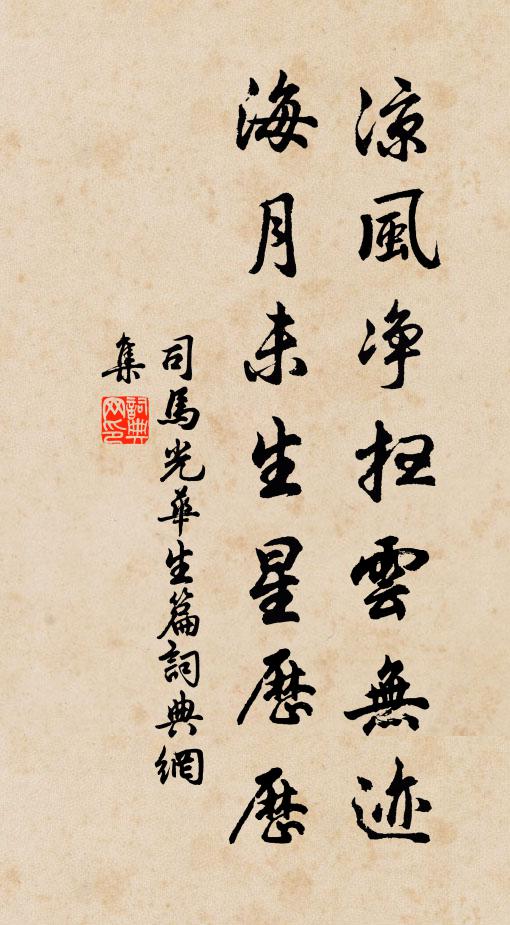 凉風净扫雲無迹
海月未生星歷歷
司馬光華生篇詞典網
集
詞典網印